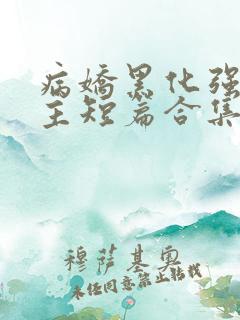 病嬌黑化强
王短篇合集
穆薩基奧
未经同意禁止转载